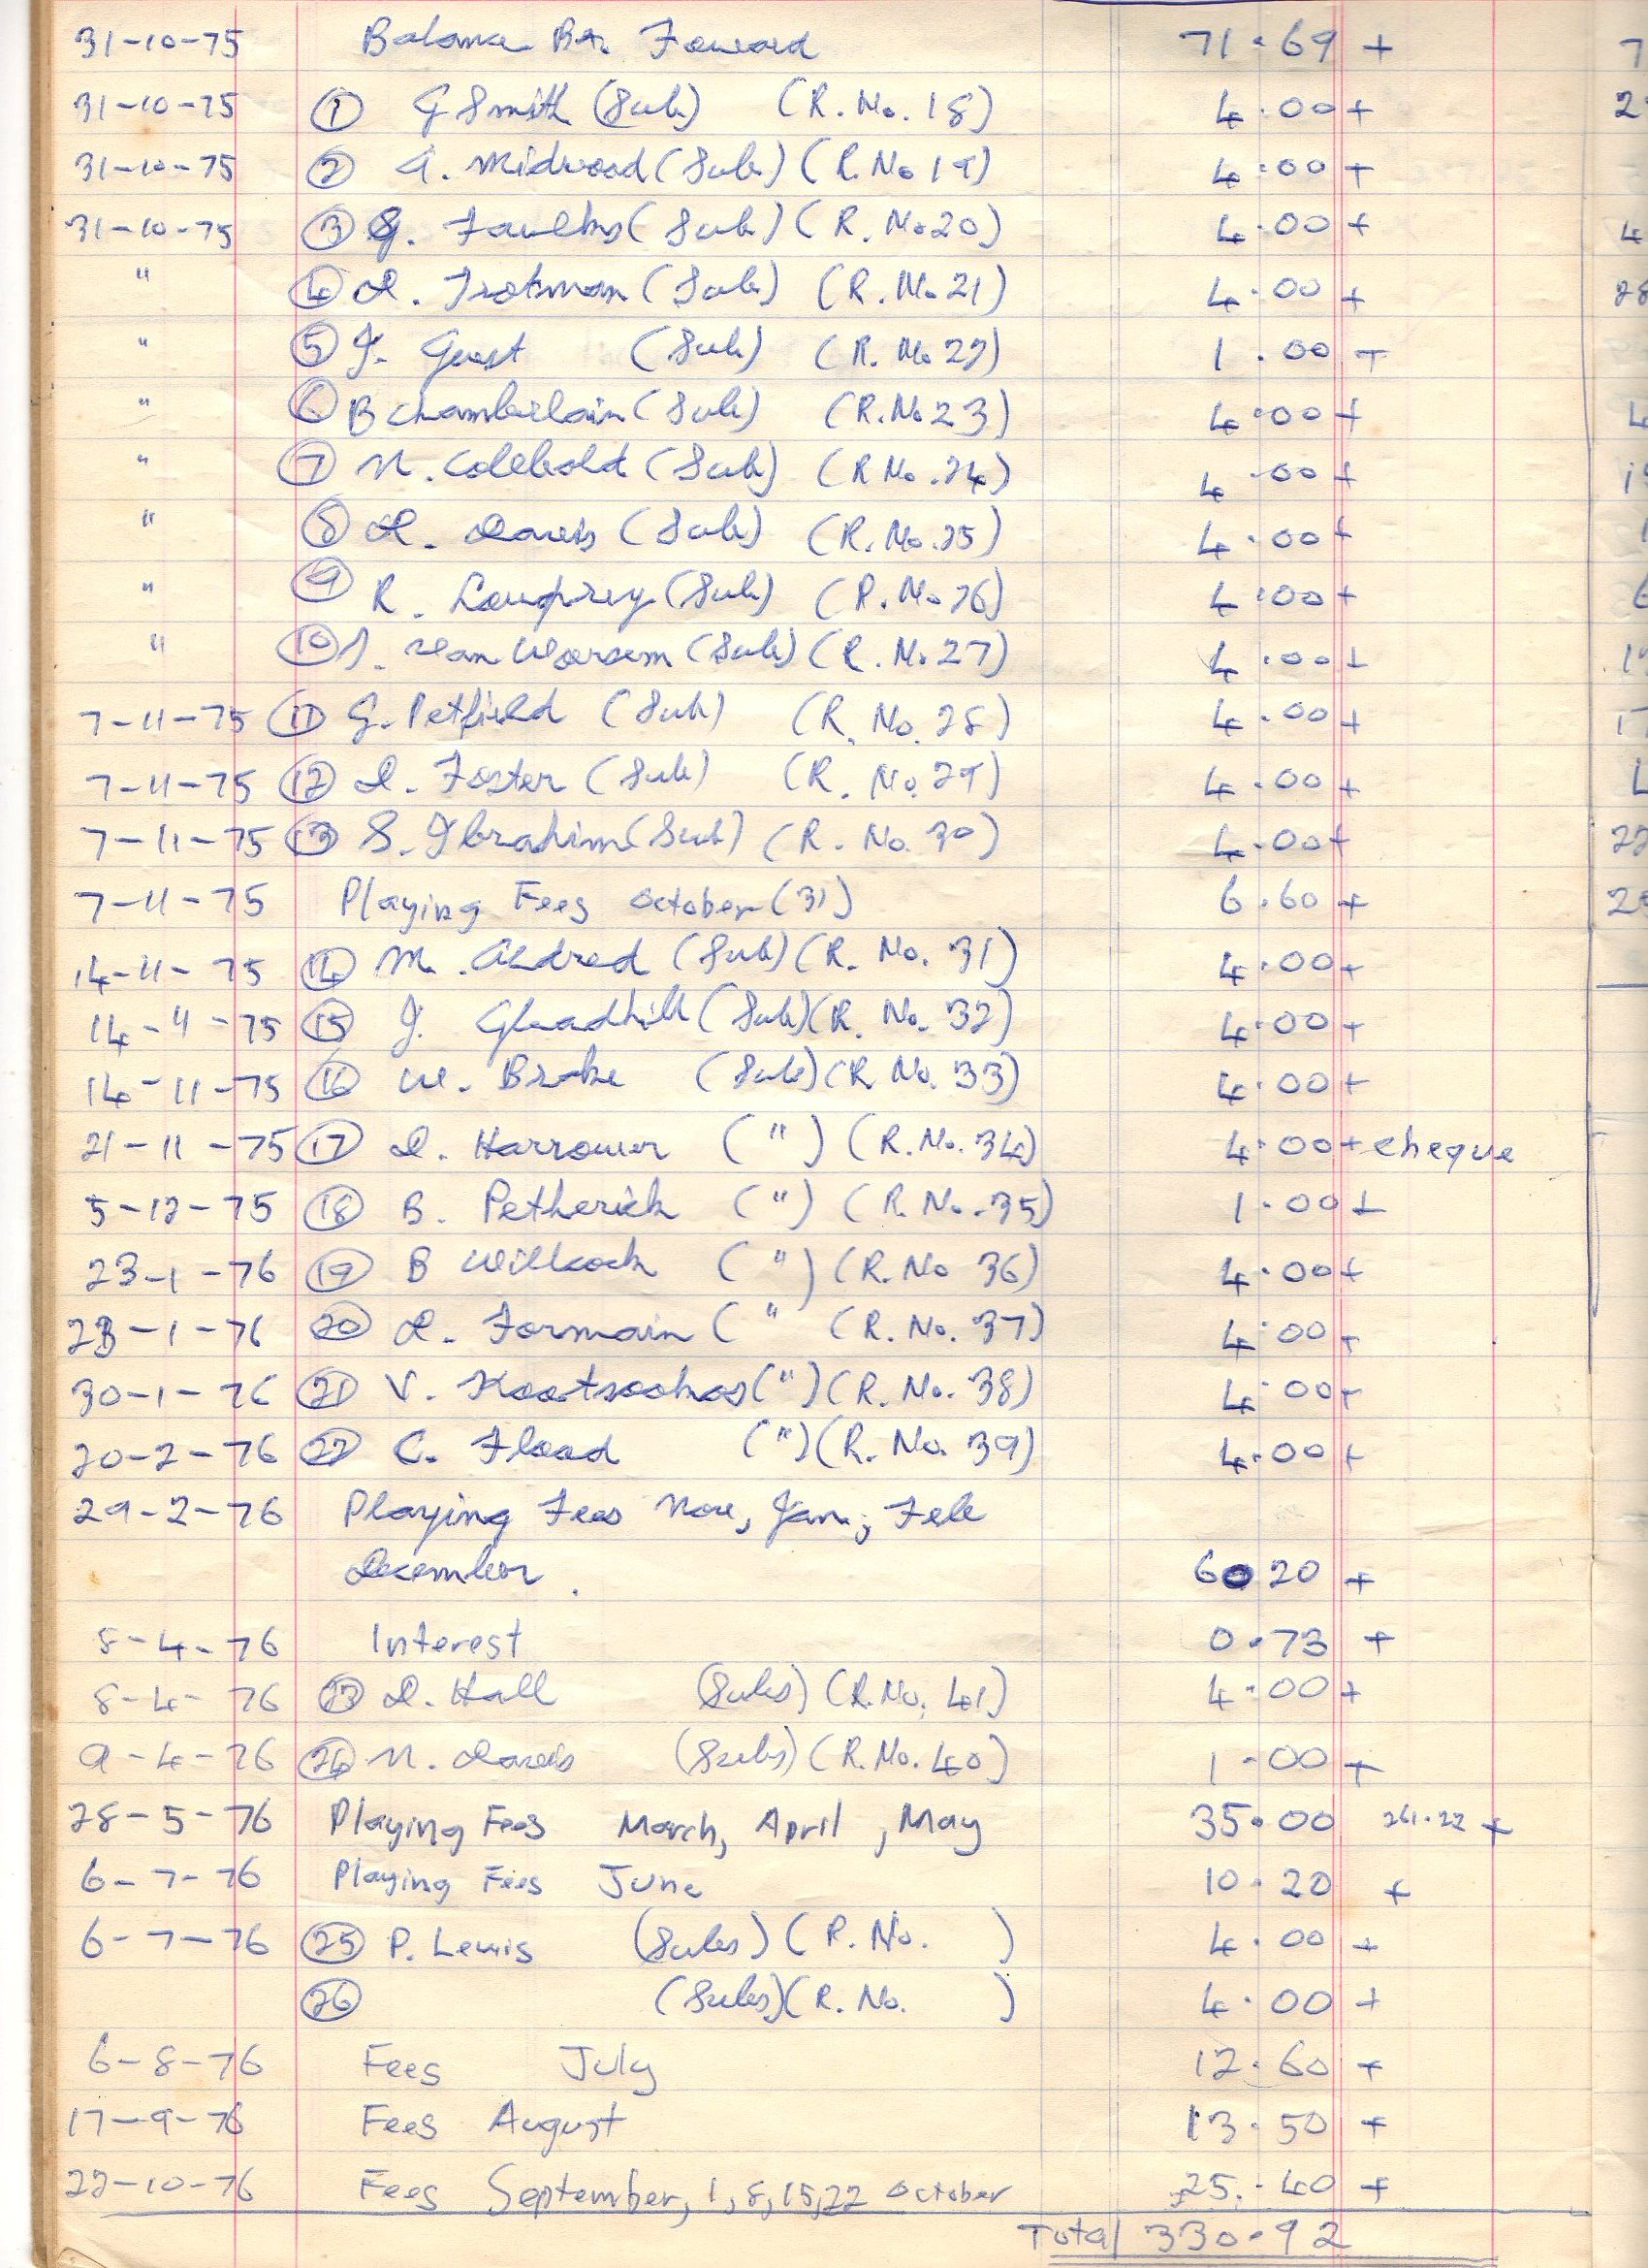 31-10-75 Balance Bt. Foward 71.69 +
31-10-75 ① G Smith (Sub) (R. No. 18) 4.00 +
31-10-75 ② A. Midwood (Sub) (R. No 19) 4.00 +
31-10-75 ③ G. Faulks (Sub) (R. No 20) 4.00 +
" ④ D. Trotman (Sub) (R. No 21) 4.00 +
" ⑤ J. Guest (Sub) (R. No 22) 1.00 +
" ⑥ B Chamberlain (Sub) (R. No 23) 4.00 +
" ⑦ N. Colebold (Sub) (R No. 24) 4.00 +
" ⑧ D. Davis (Sub) (R. No. 25) 4.00 +
" ⑨ R. (Sub) (R. No 26) 4.00 +
" ⑩ van Worsem (Sub) (R. No 27) 4.00 +
7-11-75 ⑪ G. Petfield (Sub) (R. No. 28) 4.00 +
7-11-75 ⑫ D. Foster (Sub) (R. No. 29) 4.00 +
7-11-75 ⑬ S. Ibrahim (Sub) (R. No. 30) 4.00 +
7-11-75 Playing Fees October (31) 6.60 +
14-11-75 ⑭ M. Aldred (Sub) (R. No. 31) 4.00 +
14-11-75 ⑮ J. Gleadhill (Sub) (R. No. 32) 4.00 +
14-11-75 ⑯ W. Brake (Sub) (R No. 33) 4.00 +
21-11-75 ⑰ D. Harrower (") (R. No. 34) 4.00 + cheque
5-12-75 ⑱ B. Petherick (") (R. No. 35) 1.00 +
23-1-76 ⑲ B Willcock (") (R. No 36) 4.00 +
23-1-76 ⑳ D. Formain (" (R. No. 37) 4.00 +
30-1-76 ㉑ V. Kootsookos (") (R. No. 38) 4.00 +
20-2-76 ㉒ C. Flood (") (R. No. 39) 4.00 +
29-2-76 Playing Fees Nov, Jan, Feb
December. 60 20 +
8-4-76 Interest 0.73 +
8-4-76 ㉓ D. Hall (Subs) (R. No. 41) 4.00 +
9-4-76 ㉔ N. Davis (Subs) (R. No. 40) 1.00 +
28-5-76 Playing Fees March, April, May 35.00 261.22 +
6-7-76 Playing Fees June 10.20 +
6-7-76 ㉕ P. Lewis (Subs) (R. No. ) 4.00 +
㉖ (Subs) (R. No. ) 4.00 +
6-8-76 Fees July 12.60 +
17-9-76 Fees August 13.50 +
22-10-76 Fees September, 1, 8, 15, 22 October 25.40 +
Total 330.92